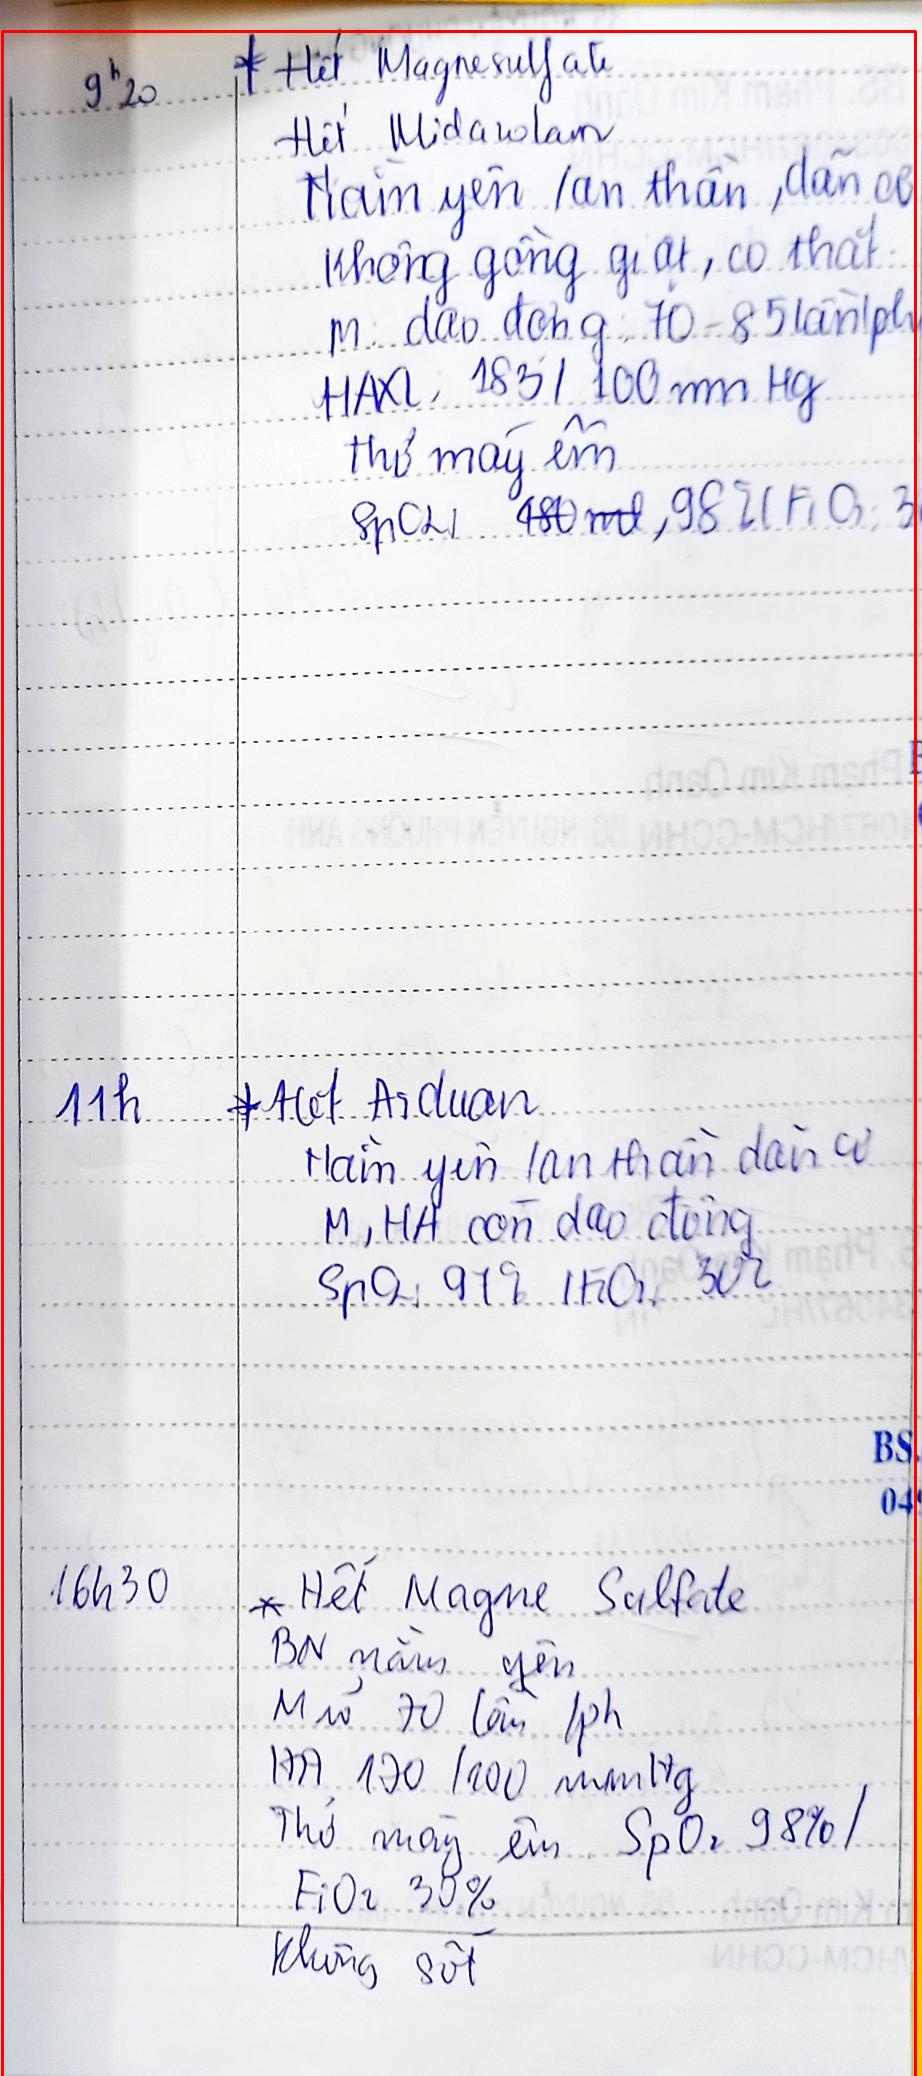 9h20 * Hết Magnesulfate
Hết Midazolam
Nằm yên / an thần, dãn cơ
Không gồng giật, co thắt
M: dao động: 70-85 lần/ph
HAXL: 183/100 mmHg
thở máy êm
SpO2: 480 ml, 98% / FiO2: 30
11h * Hết Arduan
Nằm yên / an thần dãn cơ
M, HA còn dao động
SpO2: 97% / FiO2: 30%
BS.
04
16h30 * Hết Magne Sulfate
BN nằm yên
M rõ 70 lần /ph
HA 170/100 mmHg
Thở máy êm. SpO2 98% /
FiO2 30%
Không sốt